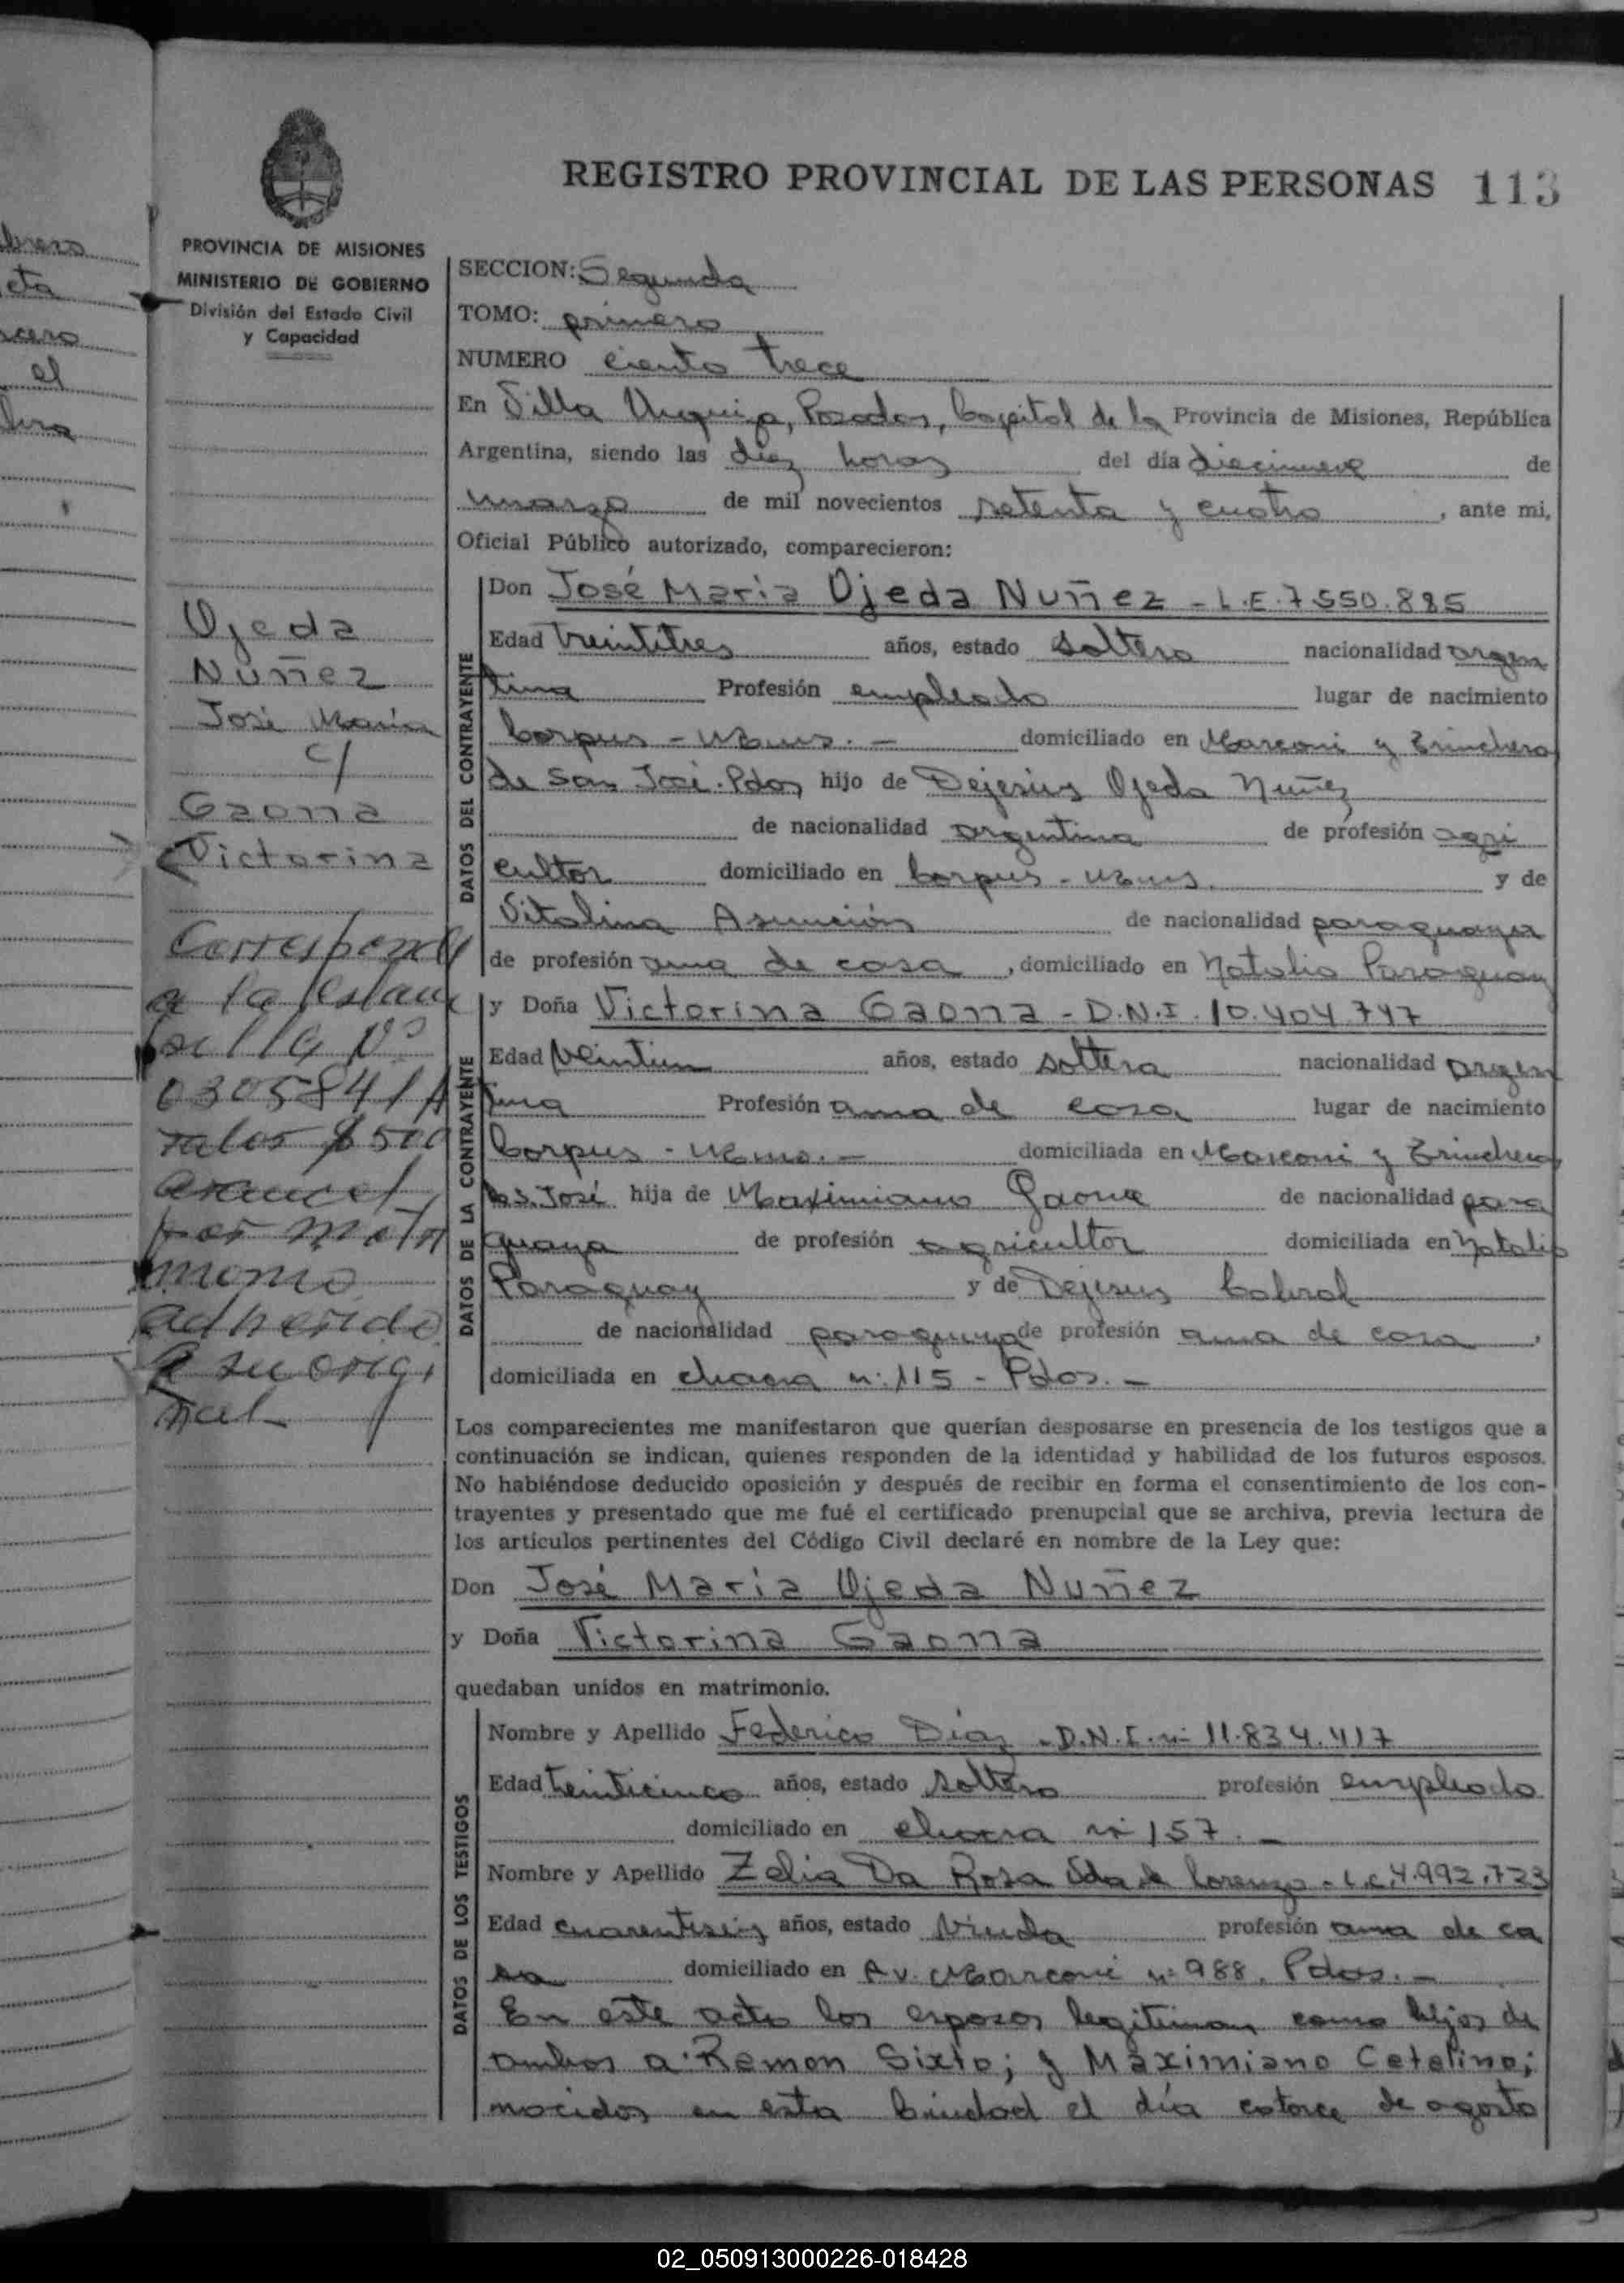 REGISTRO PROVINCIAL DE LAS PERSONAS 113
PROVINCIA DE MISIONES
MINISTERIO DE GOBIERNO
División del Estado Civil
y Capacidad
SECCION: Segunda
TOMO: primero
NUMERO ciento trece
En Villa Urquiza, Posadas, Capital de la Provincia de Misiones, República
Argentina, siendo las diez horas del día diecinueve de
marzo de mil novecientos setenta y cuatro, ante mi,
Oficial Público autorizado, comparecieron:
Ojeda
Nuñez
José María
c/
Gaona
Victorina
Corresponde
a la estam
pilla Nº
0305841/A
valor $500
arancel
por matri
monio
adherido
a su origi
nal
DATOS DEL CONTRAYENTE
Don José María Ojeda Nuñez - L.E. 7.550.885
Edad treintitres años, estado soltero nacionalidad argen
tina Profesión empleado lugar de nacimiento
Corpus - Mnes. - domiciliado en Marconi y Trinchera
de San José. Pdas hijo de Dejesús Ojeda Nuñez
de nacionalidad argentina de profesión agri
cultor domiciliado en Corpus - Mnes. y de
Vitalina Asunción de nacionalidad paraguaya
de profesión ama de casa, domiciliado en Natalio Paraguay
DATOS DE LA CONTRAYENTE
y Doña Victorina Gaona - D.N.I. 10.404.747
Edad veintiun años, estado soltera nacionalidad argen
tina Profesión ama de casa lugar de nacimiento
Corpus - Mnes. - domiciliada en Marconi y Trinchera
de S. José hija de Maximiano Gaona de nacionalidad para
guaya de profesión agricultor domiciliada en Natalio
Paraguay y de Dejesus Cabral
de nacionalidad paraguaya de profesión ama de casa,
domiciliada en chacra nº 115 - Pdas. -
Los comparecientes me manifestaron que querían desposarse en presencia de los testigos que a
continuación se indican, quienes responden de la identidad y habilidad de los futuros esposos.
No habiéndose deducido oposición y después de recibir en forma el consentimiento de los con-
trayentes y presentado que me fué el certificado prenupcial que se archiva, previa lectura de
los artículos pertinentes del Código Civil declaré en nombre de la Ley que:
Don José María Ojeda Nuñez
y Doña Victorina Gaona
quedaban unidos en matrimonio.
DATOS DE LOS TESTIGOS
Nombre y Apellido Federico Díaz - D.N.I. nº 11.834.417
Edad veinticinco años, estado soltero profesión empleado
domiciliado en chacra nº 157. -
Nombre y Apellido Zelia Da Rosa Vda de Lorenzo - L.C. 4.992.723
Edad cuarentiseis años, estado viuda profesión ama de ca
sa domiciliado en Av. Marconi nº 988. Pdas. -
En este acto los esposos legitiman como hijos de
ambos a: Ramon Sixto; y Maximiano Catalino;
nacidos en esta Ciudad el día catorce de agosto
02_050913000226-018428